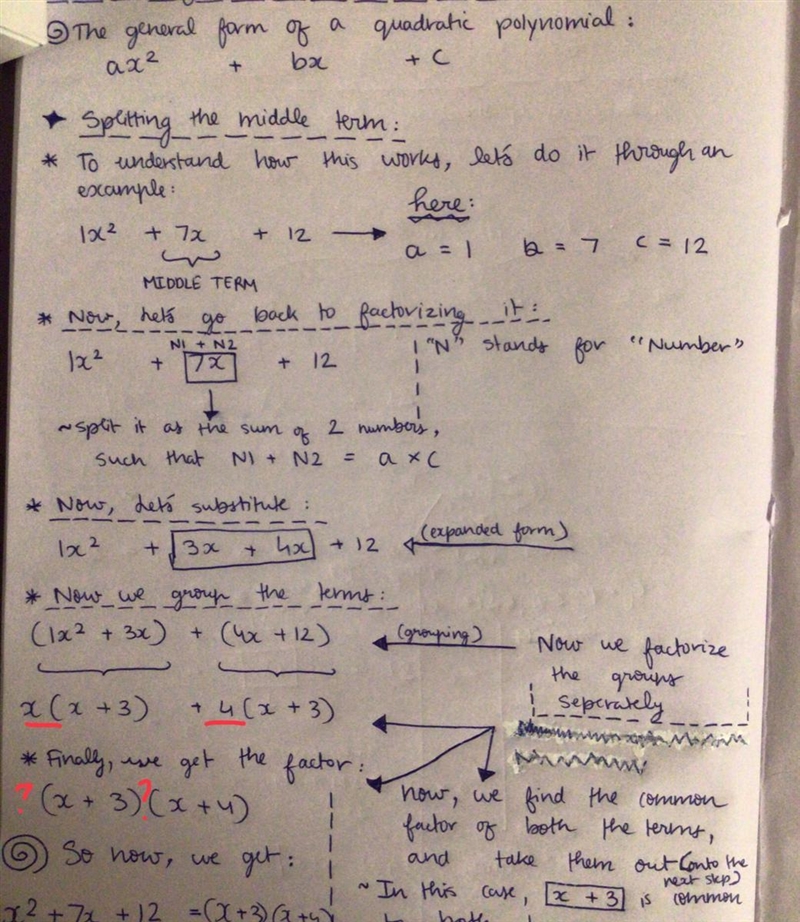 The general form of a quadratic polynomial:
ax² + bx + c
Splitting the middle term:
* To understand how this works, let's do it through an
example:
1x² + 7x + 12
MIDDLE TERM
here:
a = 1 b = 7 c = 12
* Now, let's go back to factorizing it:
N1 + N2
1x² + 7x + 12
"N" stands for "Number"
~ split it as the sum of 2 numbers,
such that N1 + N2 = a × c
* Now, let's substitute:
1x² + 3x + 4x + 12
(expanded form)
* Now we group the terms:
(1x² + 3x) + (4x + 12)
(grouping)
Now we factorize
the groups
seperately
x(x + 3) + 4(x + 3)
* Finally, we get the factor:
? (x + 3)?(x + 4)
Now, we find the common
factor of both the terms,
and take them out (onto the
next step)
~ In this case, x + 3 is common
So now, we get:
x² + 7x + 12 = (x+3)(x+4)